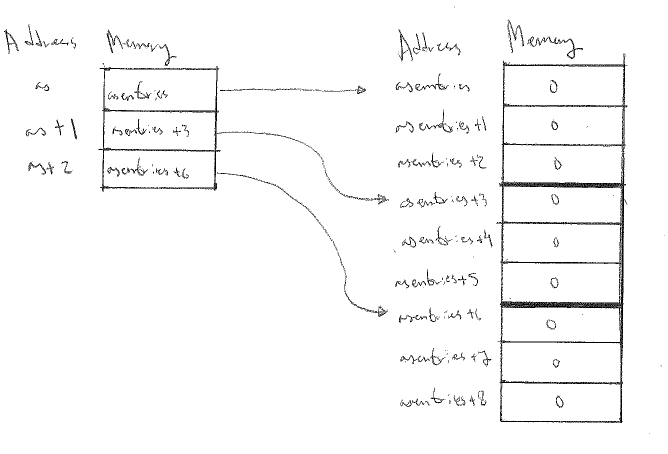 Address Memory
as asentries
as+1 asentries+3
as+2 asentries+6
Address Memory
asentries 0
asentries+1 0
asentries+2 0
asentries+3 0
asentries+4 0
asentries+5 0
asentries+6 0
asentries+7 0
asentries+8 0